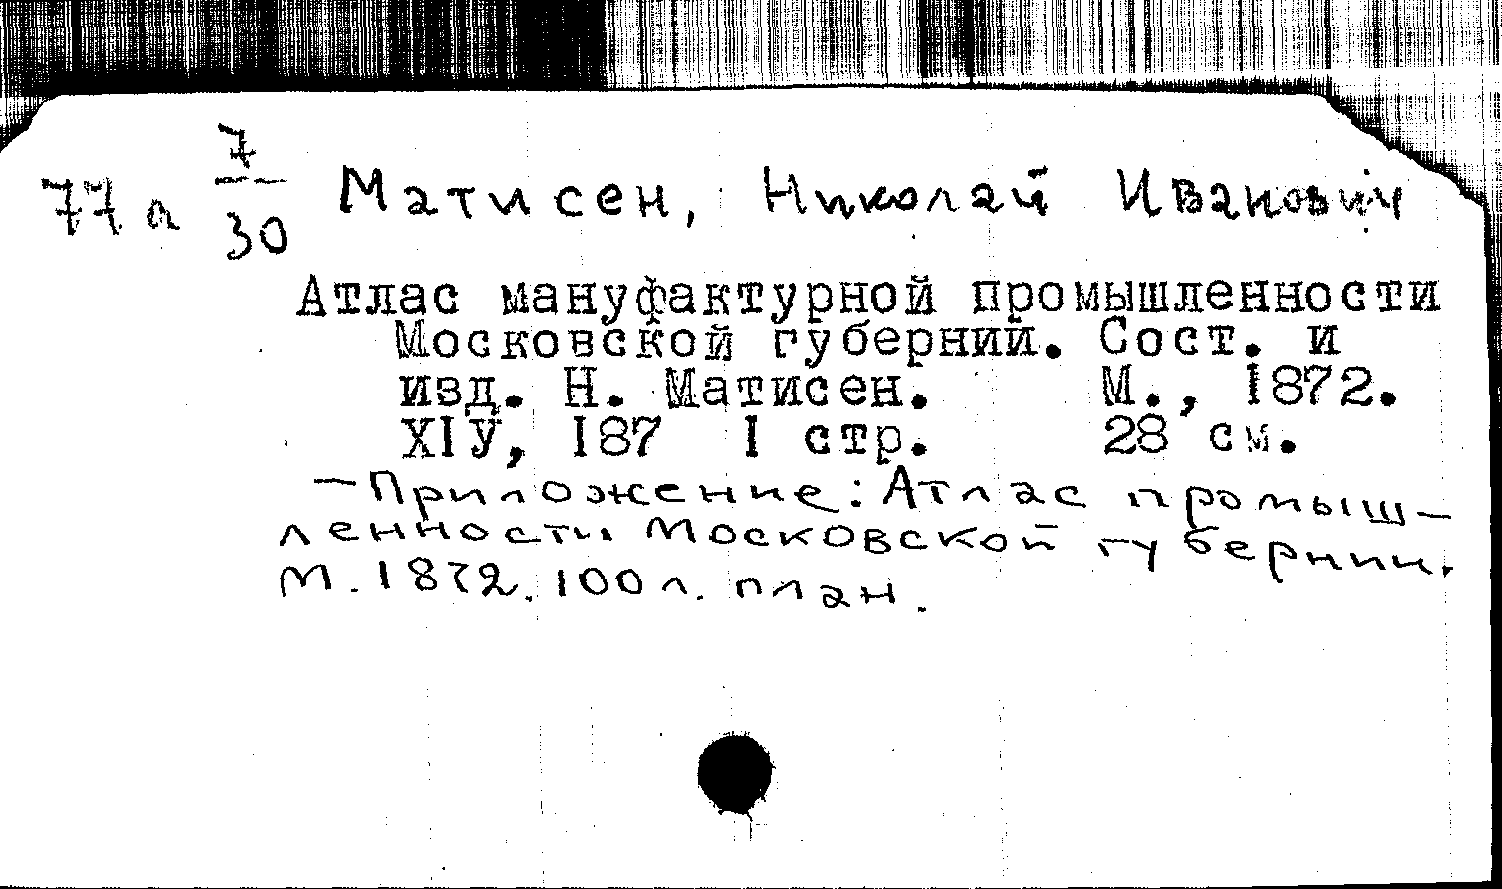 77а 7/30 Матисен, Николай Иванович
Атлас мануфактурной промышленности
Московской губернии. Сост. и
изд. Н. Матисен. М., 1872.
ХІУ, 187 1 стр. 28 см.
— Приложение: Атлас промыш-
ленности Московской губернии.
М. 1872. 100 л. план.